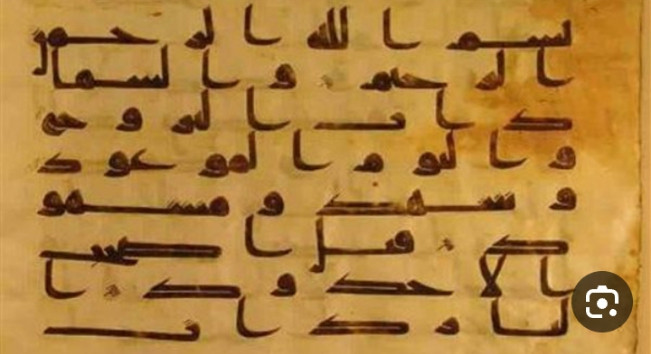 بسم الله الرحمن
الرحيم والسما
ذات البروج
واليوم الموعود
وشهد ومشهو
د قتل اصحب
الاخدود ا
لنار ذات